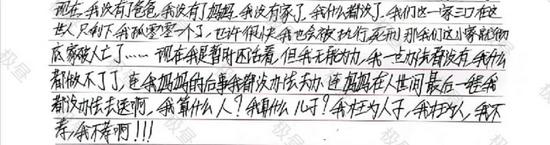 现在,我没有了爸爸,我没有了妈妈,我没有家了,我什么都没了,我们这一家三口在这
世人只剩下我孤零零一个了,也许很快我也会被执行死刑,那我们这个家就彻
底家破人亡了……现在我是暂时还活着,但我无能为力,我一点办法都没有,我什么
都做不了了,连我妈妈的后事我都没办法去办,连妈妈在人世间最后一程我
都没办法去送啊,我算什么人?我算什么儿子?我枉为人子,我枉为人,我不
孝,我不孝啊!!!
极昼